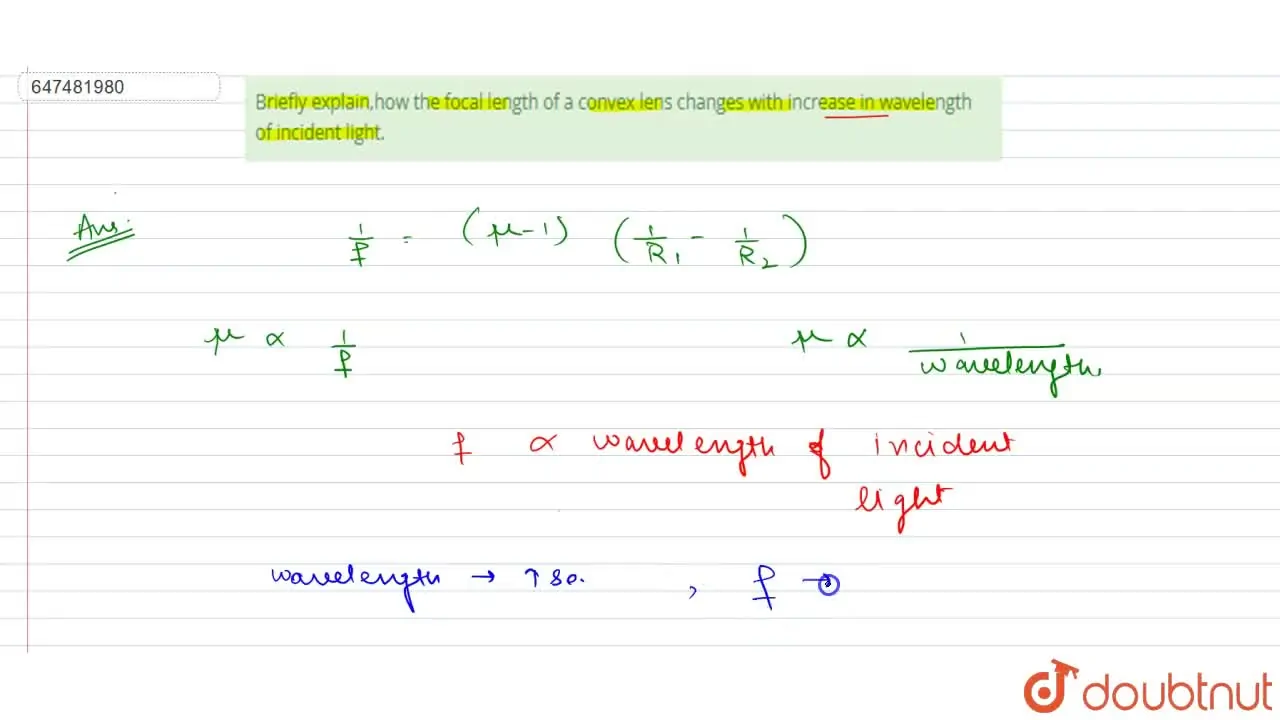 647481980
Briefly explain,how the focal length of a convex lens changes with increase in wavelength
of incident light.
Ans:
1/f = (μ-1) (1/R₁ - 1/R₂)
μ ∝ 1/f
μ ∝ 1/wavelength
f ∝ wavelength of incident
light
wavelength → ↑ so. , f →
doubtnut